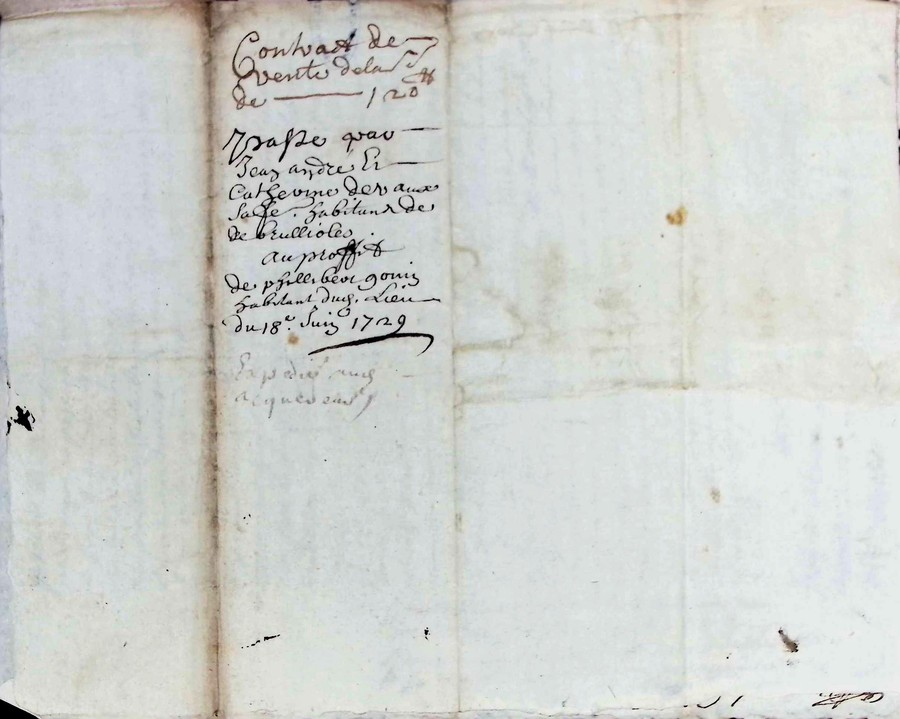 Contract de
vente dela ss
de 120 tt
passe par
Jean andre Et
Catherine devaux
sa fe. habitant de
de brullioles
au proffit
de phillibert gonin
habitant dud. Lieu
du 18e. Juin 1729
Expedie aux
acquereurs